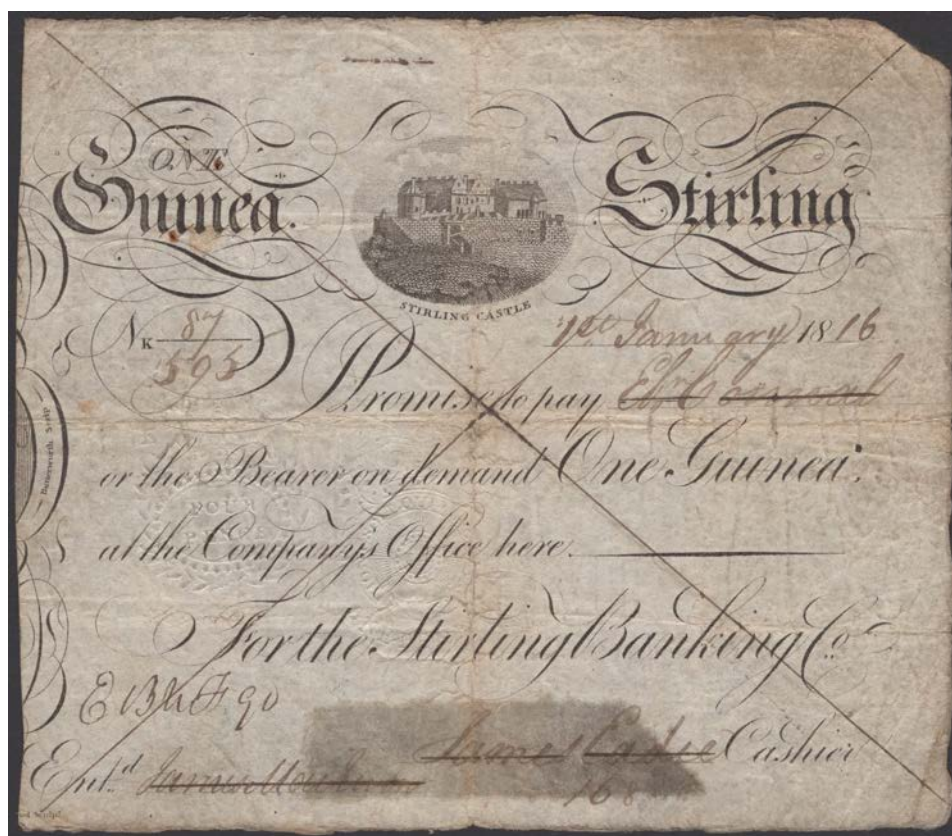 ONE
Guinea. Stirling
STIRLING CASTLE
No. K 87
595
1st January 1816
Promise to pay
or the Bearer on demand One Guinea,
at the Company's Office here.
For the Stirling Banking Co.
Entd. James
James Eadie Cashier